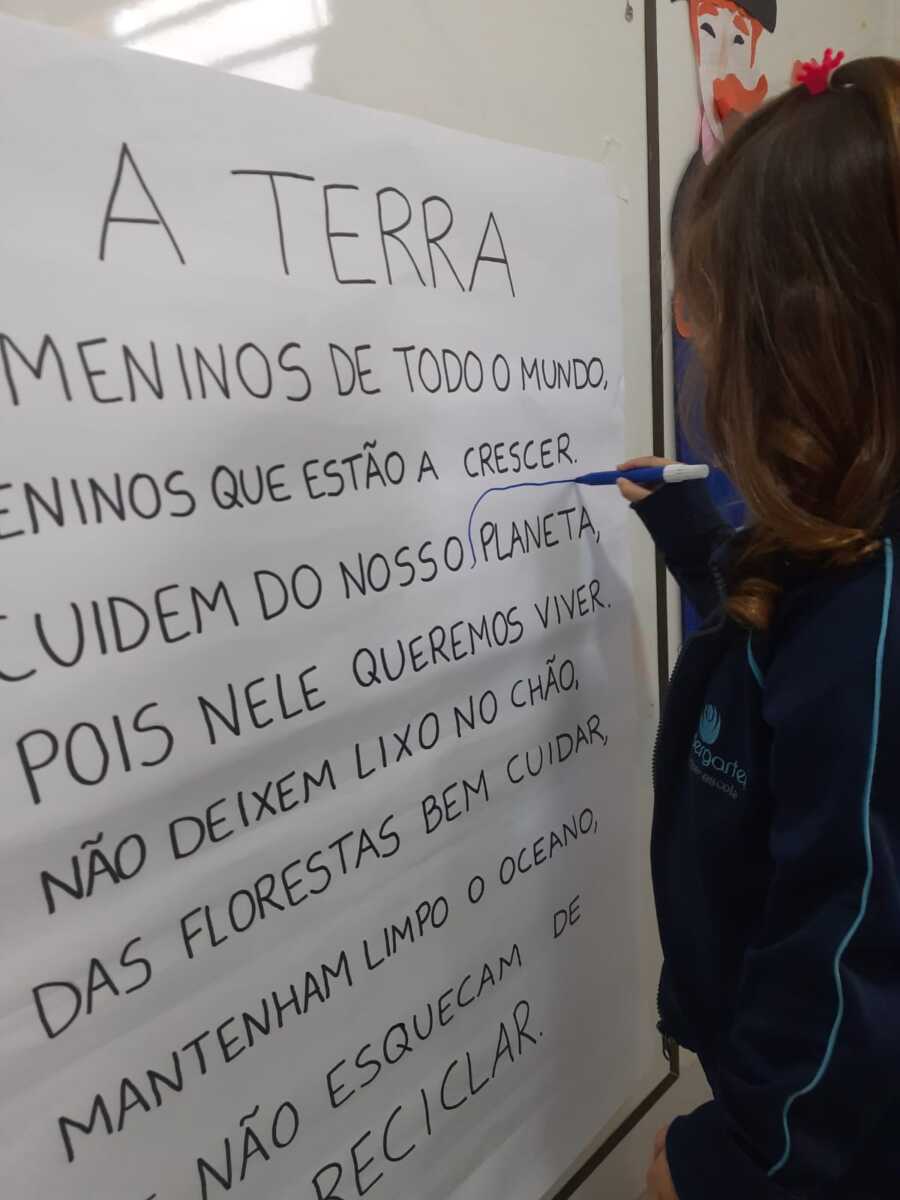 A TERRA
MENINOS DE TODO O MUNDO,
ENINOS QUE ESTÃO A CRESCER.
CUIDEM DO NOSSO PLANETA,
POIS NELE QUEREMOS VIVER.
NÃO DEIXEM LIXO NO CHÃO,
DAS FLORESTAS BEM CUIDAR,
MANTENHAM LIMPO O OCEANO,
NÃO ESQUECAM DE
RECICLAR.